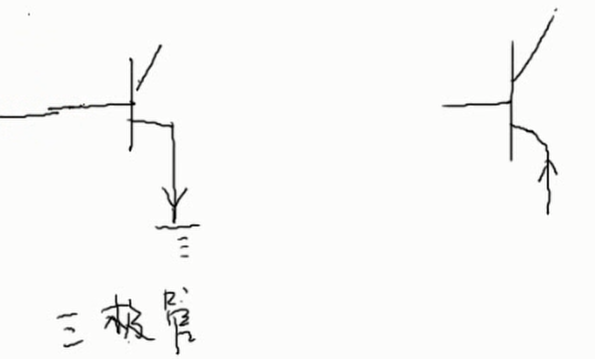 三极管